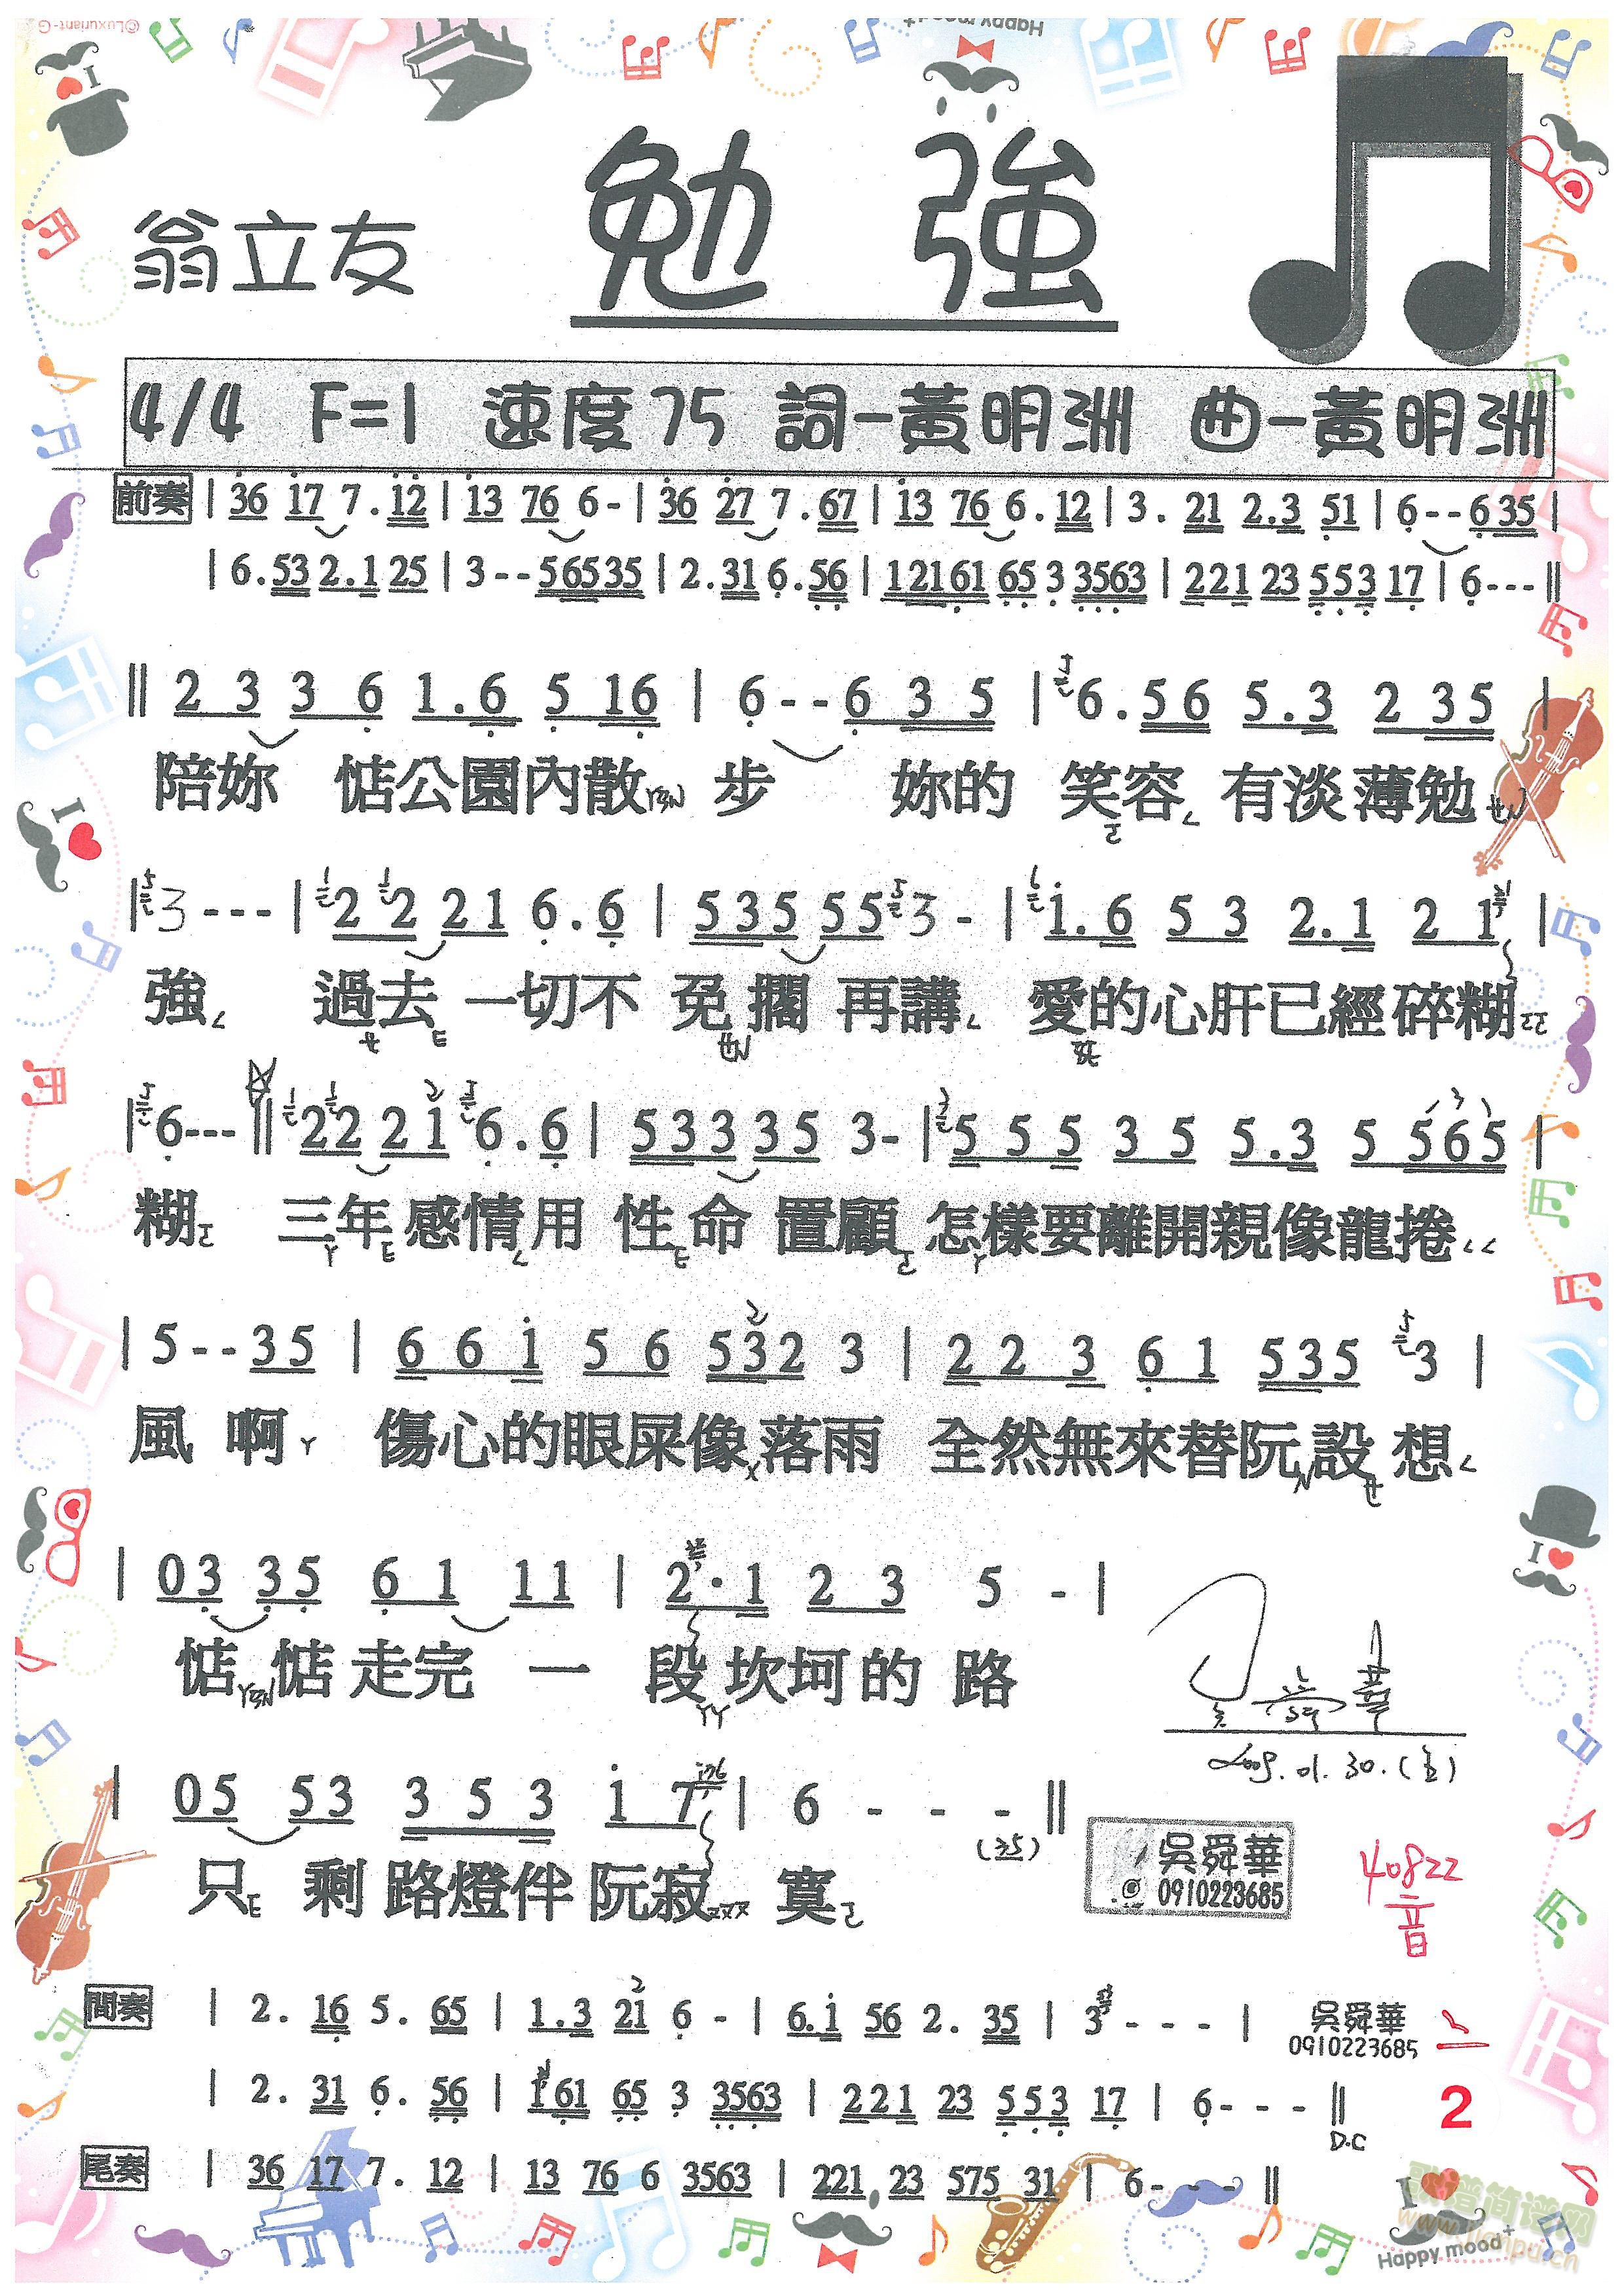 翁立友
勉 強
4/4 F=1 速度75 詞-黃明洲 曲-黃明洲
前奏 | 36 17 7.12 | 13 76 6- | 36 27 7.67 | 13 76 6.12 | 3. 21 2.3 51 | 6--635 |
| 6.53 2.1 25 | 3--56535 | 2.31 6.56 | 12161 65 3 3563 | 221 23 553 17 | 6--- ||
|| 2 3 3 6 1.6 5 16 | 6--6 3 5 | 6.56 5.3 2 35 |
陪妳 惦公園內散 步 妳的 笑容 有淡薄勉
| 3--- | 2 2 21 6.6 | 535 55 3- | 1.6 5 3 2.1 2 1 |
強 過去 一切不 免擱 再講 愛的心肝已經碎糊
| 6--- || 22 21 6.6 | 533 35 3- | 5 5 5 3 5 5.3 5 565 |
糊 三年感情用 性命 置顧 怎樣要離開親像龍捲
| 5--35 | 6 6 1 5 6 532 3 | 2 2 3 6 1 535 3 |
風 啊 傷心的眼屎像落雨 全然無來替阮設想
| 03 35 6 1 11 | 2.1 2 3 5 - |
惦惦走完 一 段坎坷的 路
| 05 53 3 5 3 1 7 | 6 - - - ||
(35)
只 剩 路燈伴阮寂 寞
吳舜華
0910223685
40822
音
間奏 | 2. 16 5. 65 | 1.3 21 6 - | 6.1 56 2. 35 | 3 - - - |
吳舜華
0910223685
| 2. 31 6. 56 | 161 65 3 3563 | 221 23 553 17 | 6- - - ||
D.C
2
尾奏 | 36 17 7. 12 | 13 76 6 3563 | 221 23 575 31 | 6- - - ||
Happy mood+
©Luxuriant-G